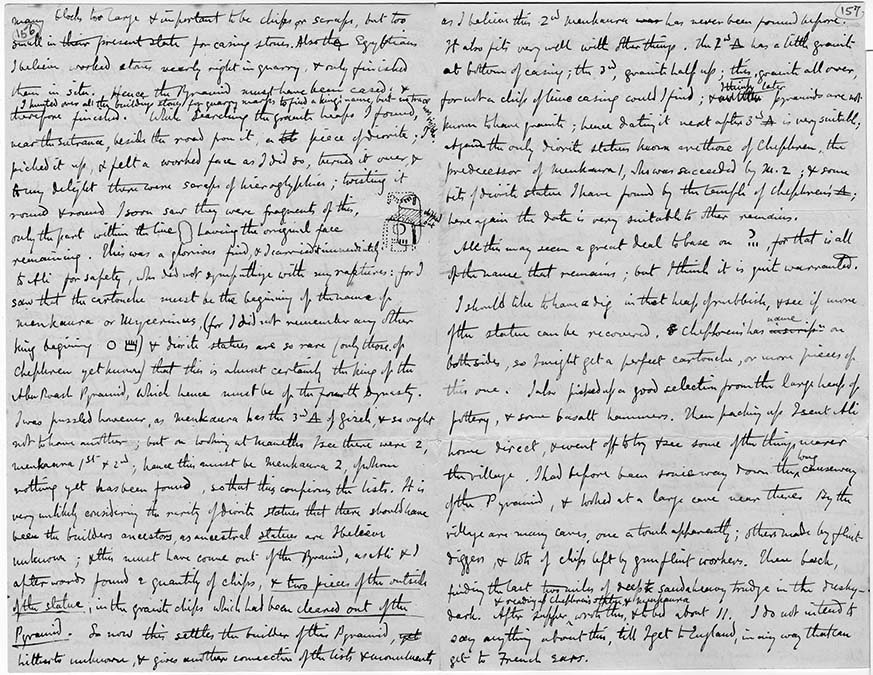 156
many blocks too large & important to be chips or scraps, but too
small in their present state for casing stones. Also the Egyptians
I believe worked stones nearly right in quarry, & only finished
them in situ. Hence the Pyramid must have been cased, &
I hunted over all the building stones for quarry marks to find a king's name, but in vain
therefore finished. While searching the granite heaps I found,
near the entrance, beside the road from it, a piece of diorite; I
picked it up, & felt a worked face as I did so, turned it over, &
to my delight there were scraps of hieroglyphics; twisting it
round & round I soon saw they were fragments of this,
only the part within the line having the original face
remaining. This was a glorious find, & I carried it immediately
to Ali for safety, who did not sympathize with my raptures: for I
saw that the cartouche must be the beginning of the name of
Menkaura or Mycerinus, (for I did not remember any other
king begining) & diorite statues are so rare (only those of
Chephren yet known) that this is almost certainly the king of the
Abu Roash Pyramid, which hence must be of the fourth dynasty.
I was puzzled however, as Menkaura has the 3rd Δ of Gizeh, & so ought
not to have another; but on looking at Manetho I see there were 2,
Menkaura 1st & 2nd; hence this must be Menkaura 2, of whom
nothing yet has been found, so that this confirms the lists. It is
very unlikely considering the rarity of diorite statues that there should have
been the builders ancestors, as ancestral statues are I believe
unknown; & this must have come out of the Pyramid, as Ali & I
afterwards found a quantity of chips, & two pieces of the outside
of the statue, in the granite chips which had been cleared out of the
Pyramid. So now this settles the builder of this Pyramid, yet
hitherto unknown, & gives another connection of the lists & monuments
157
as I believe this 2nd Menkaura has never been found before.
It also fits very well with other things. The 2nd Δ has a little granite
at bottom of casing; the 3rd, granite half up; this, granite all over,
for not a chip of lime casing could I find; & I think later pyramids are not
known to have granite; hence dating it next after 3rd Δ is very suitable,
Again the only diorite statues known are those of Chephren, the
predecessor of Menkaura 1, who was succeeded by M. 2; & some
bits of diorite statue I have found by the temple of Chephren's Δ;
here again the date is very suitable to other remains.
All this may seem a great deal to base on, for that is all
of the name that remains; but I think it is quit warranted.
I should like to have a dig in that heap of rubbish, & see if more
of the statue can be recovered. Chephren's has name on
both sides, so I might get a perfect cartouche, or more pieces of
this one. I also picked up a good selection from the large heap of
pottery, & some basalt hammers. Then packing up I sent Ali
home direct, & went off to try & see some of the things nearer
the village. I had before been some way down the long causeway
of the Pyramid, & looked at a large cave near there. By the
village are many caves, one a tomb apparently; others made by flint
diggers, & lots of chips left by gunflint workers. Then back,
finding the last two miles of deep sand a heavy trudge in the dusky-
& reading of Chephren & Menkaura
dark. After supper, wrote this, & to bed about 11. I do not intend to
say anything about this, till I get to England, in any way that can
get to French ears.